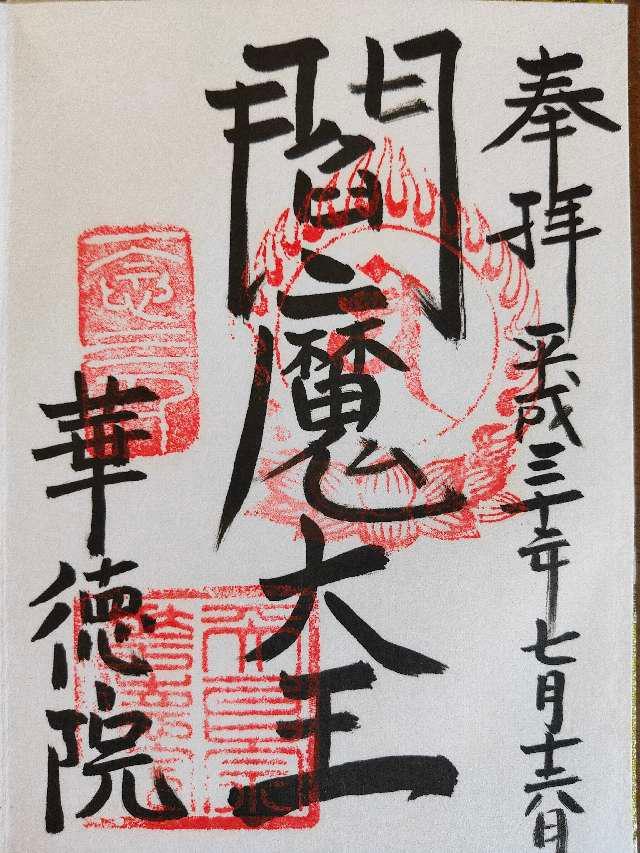 奉拝
平成三十年七月十六日
閻魔大王
華徳院